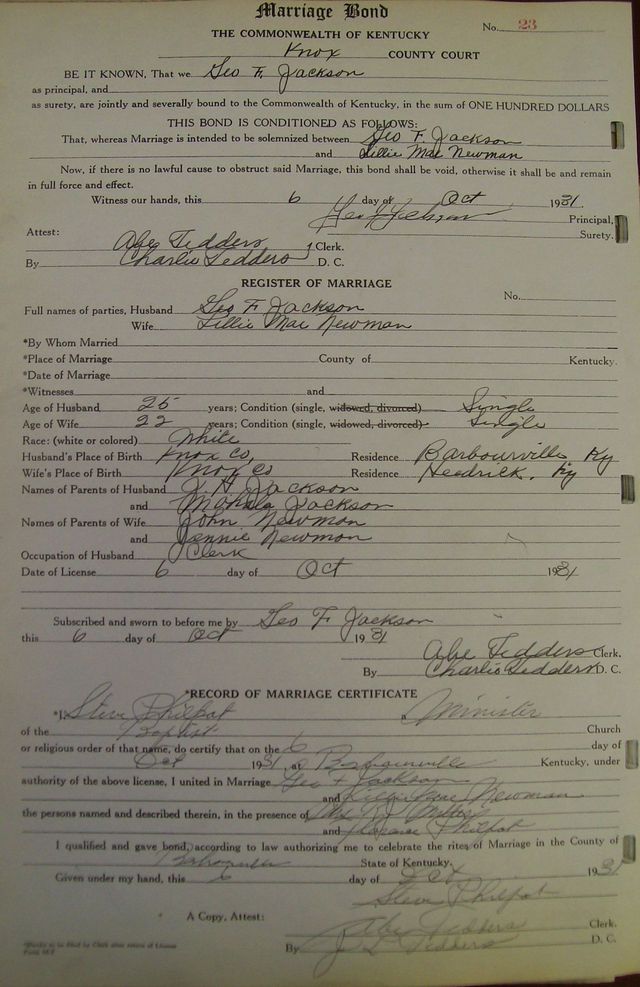 Marriage Bond
No. 23
THE COMMONWEALTH OF KENTUCKY
Knox COUNTY COURT
BE IT KNOWN, That we Geo F. Jackson
as principal, and
as surety, are jointly and severally bound to the Commonwealth of Kentucky, in the sum of ONE HUNDRED DOLLARS
THIS BOND IS CONDITIONED AS FOLLOWS:
That, whereas Marriage is intended to be solemnized between Geo F. Jackson
and Lillie Mae Newman
Now, if there is no lawful cause to obstruct said Marriage, this bond shall be void, otherwise it shall be and remain
in full force and effect.
Witness our hands, this 6 day of Oct 1931.
Geo F Jackson Principal,
Surety.
Attest:
Abe Tedders, Clerk.
By Charlie Tedders D. C.
REGISTER OF MARRIAGE
No.
Full names of parties, Husband Geo F Jackson
Wife Lillie Mae Newman
*By Whom Married
*Place of Marriage County of Kentucky.
*Date of Marriage
*Witnesses and
Age of Husband 25 years; Condition (single, widowed, divorced) Single
Age of Wife 22 years; Condition (single, widowed, divorced) Single
Race: (white or colored) White
Husband's Place of Birth Knox Co, Residence Barbourville Ky
Wife's Place of Birth Knox Co Residence Hedrick, Ky
Names of Parents of Husband J. H. Jackson
and Jackson
Names of Parents of Wife John Newman
and Jennie Newman
Occupation of Husband Clerk
Date of License 6 day of Oct 1931
Subscribed and sworn to before me by Geo F Jackson
this 6 day of Oct 1931
Abe Tedders Clerk.
By Charlie Tedders D. C.
*RECORD OF MARRIAGE CERTIFICATE
*I, Steve Philpot a Minister
of the Baptist Church
or religious order of that name, do certify that on the 6 day of
Oct 1931, at Barbourville Kentucky, under
authority of the above license, I united in Marriage Geo F Jackson
and Lillie Mae Newman
the persons named and described therein, in the presence of
and Philpot
I qualified and gave bond, according to law authorizing me to celebrate the rites of Marriage in the County of
State of Kentucky.
Given under my hand, this 6 day of Oct 1931
Steve Philpot
A Copy, Attest:
Abe Tedders Clerk.
By J L Tedders D. C.
*Blanks to be filled by Clerk after return of License